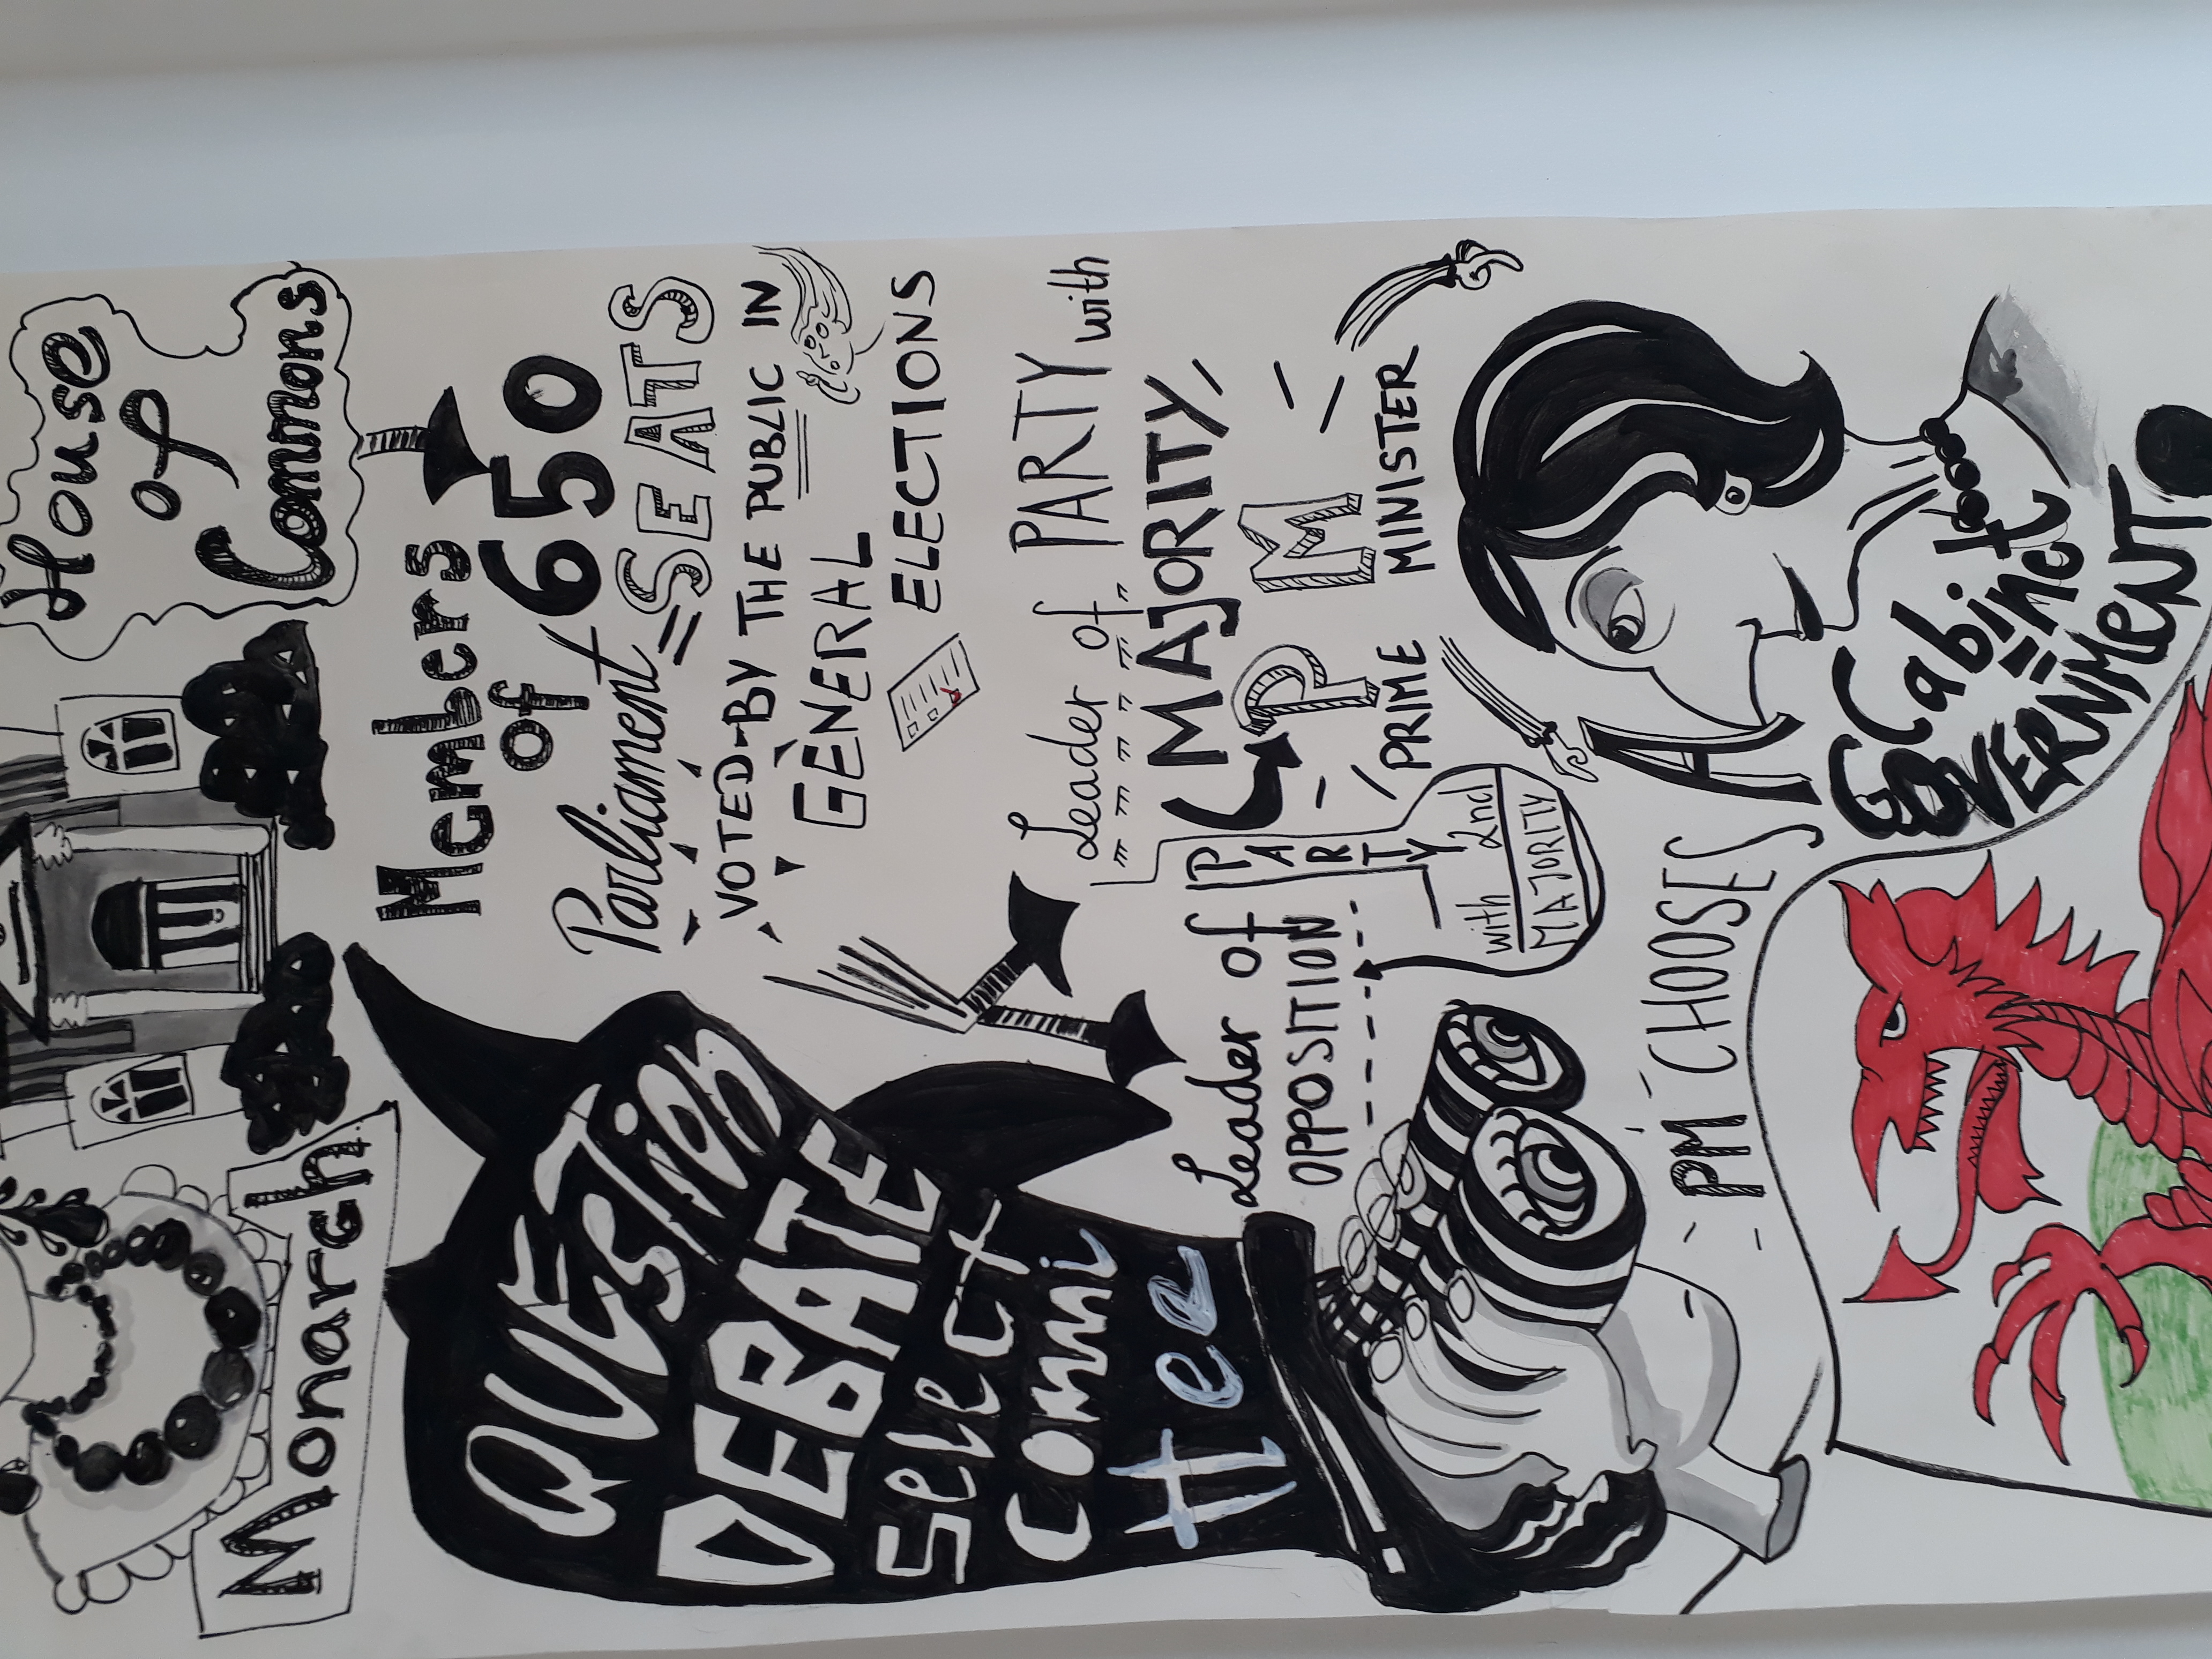 House
of
Commons
Monarch
Members
of 650
Parliament = SEATS
VOTED-BY THE PUBLIC IN
GENERAL ELECTIONS
QUESTION
DEBATE
Select
Commi
ttee
Leader of PARTY with
MAJORITY
PM
PRIME MINISTER
Leader of PARTY
OPPOSITION
with 2nd
MAJORITY
PM CHOOSES
Cabinet
=
GOVERNMENT!